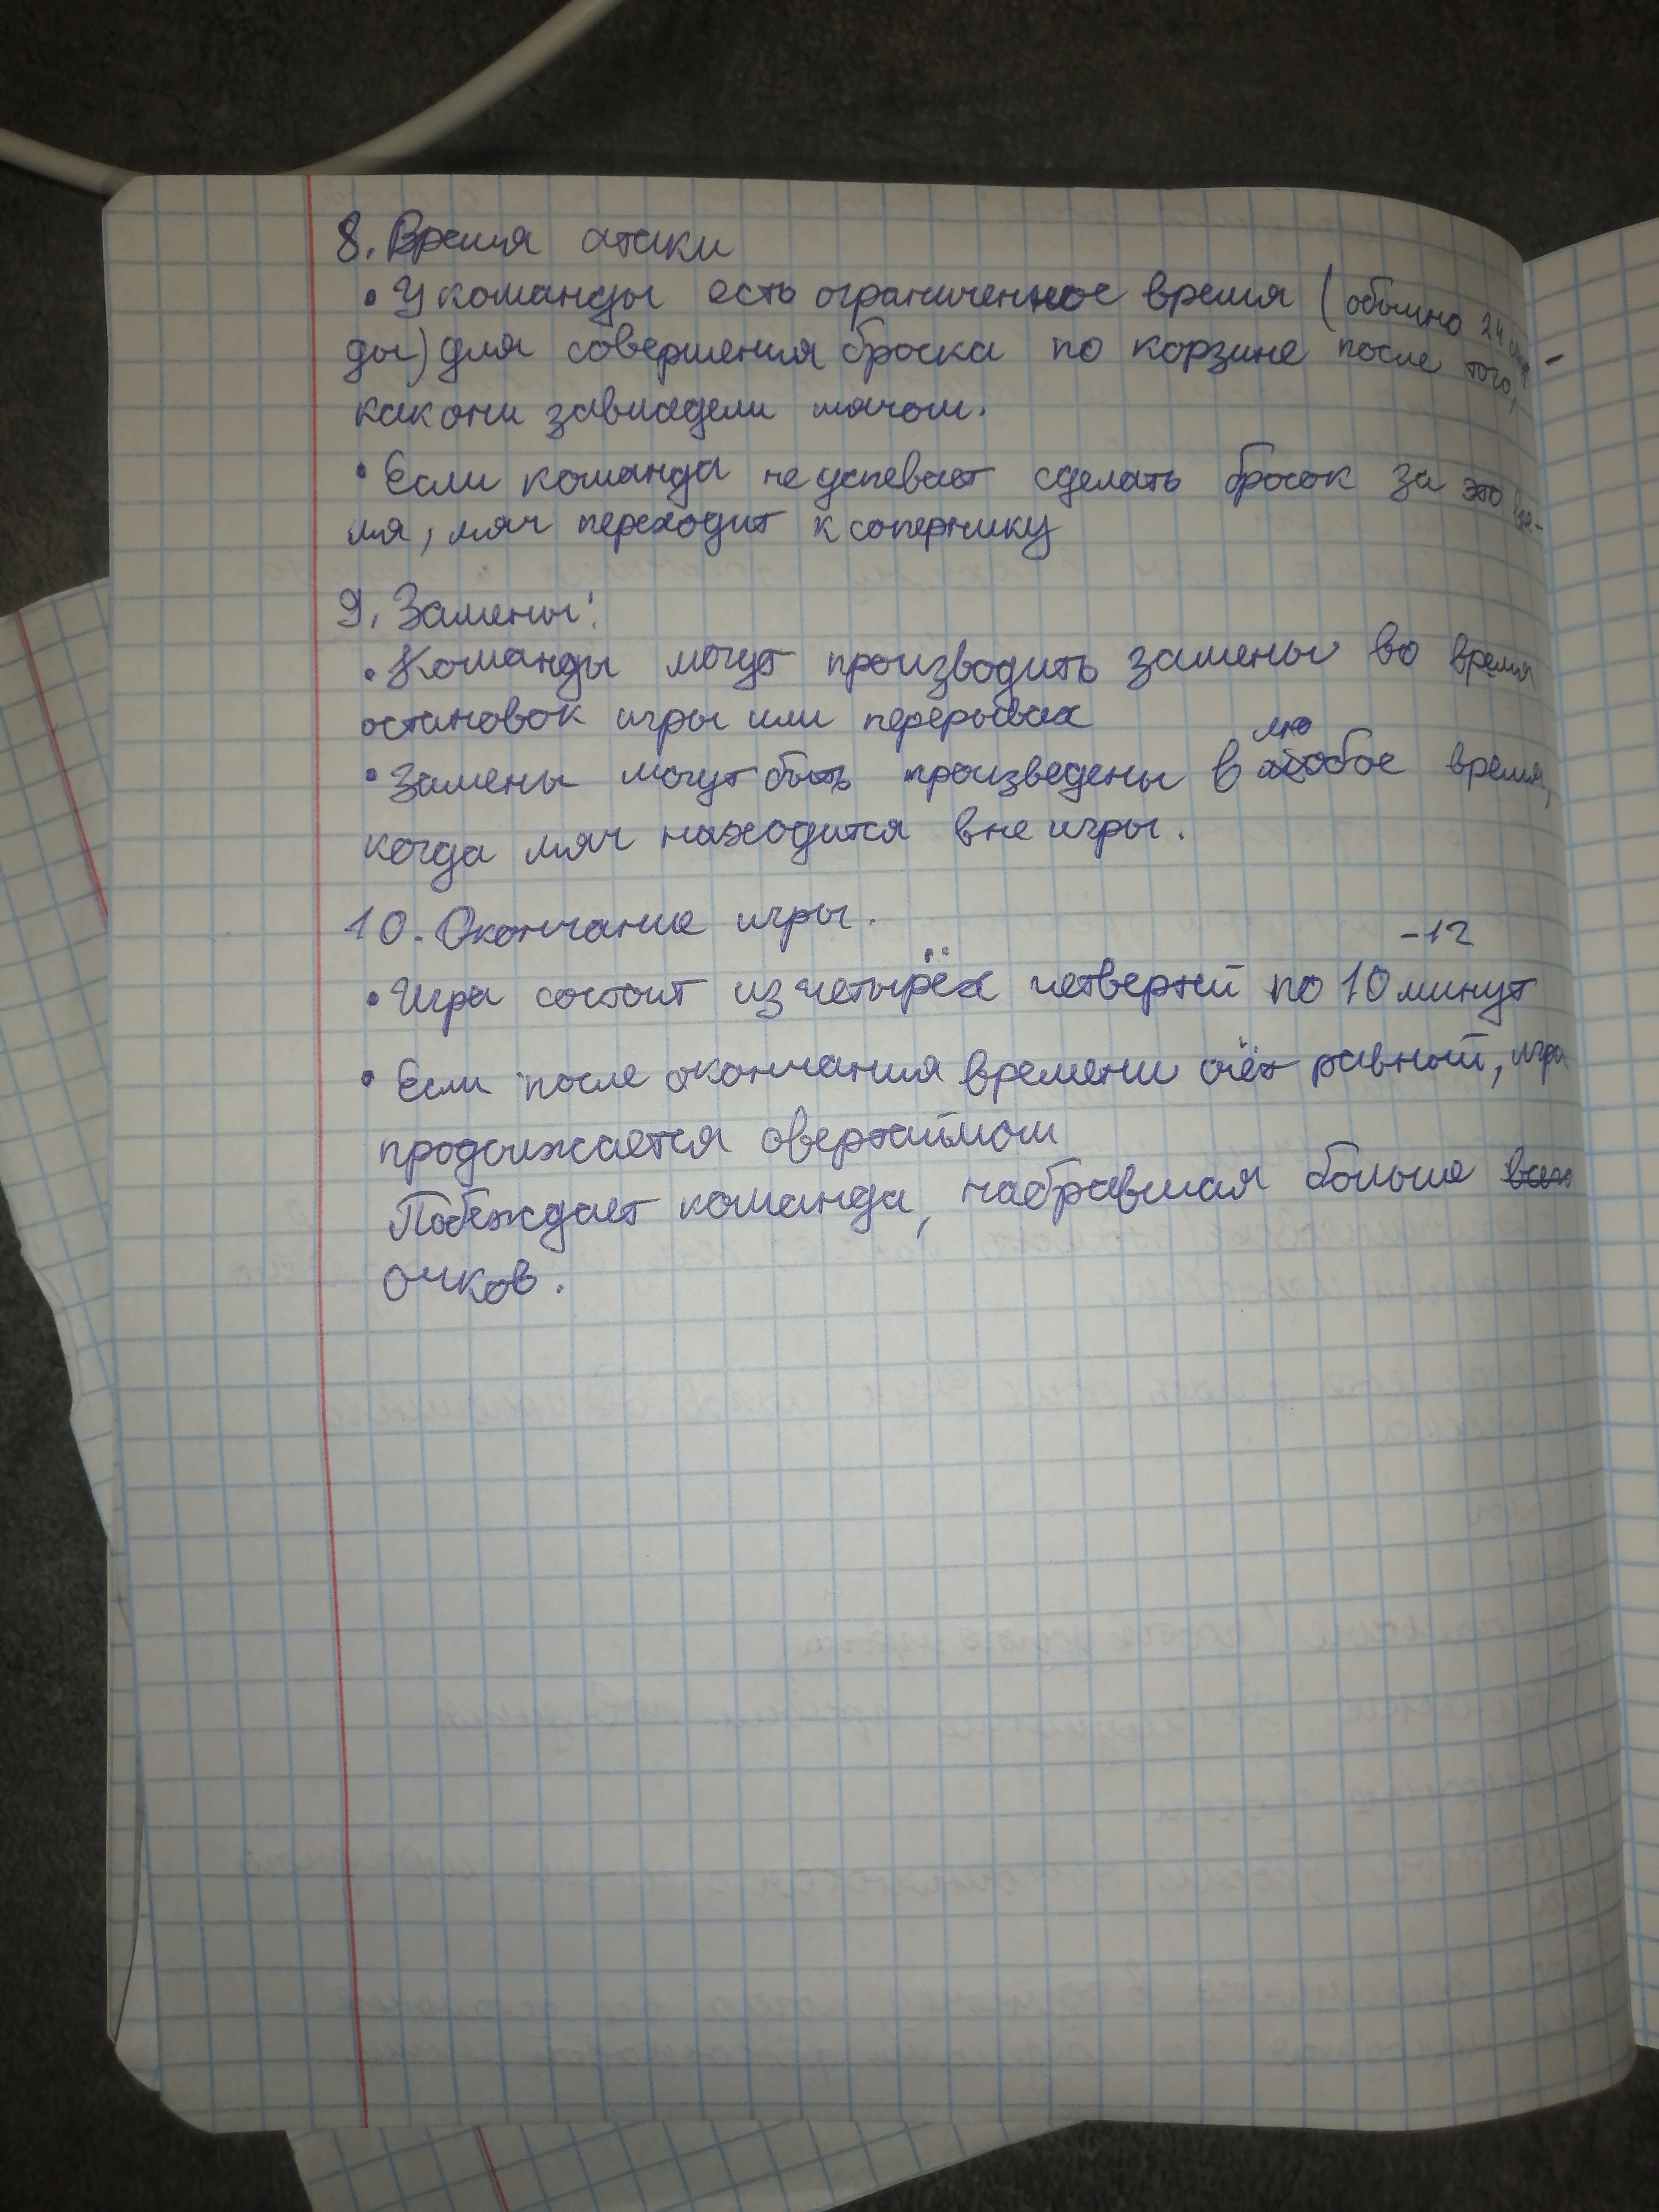 8. Время атаки
• У команды есть ограниченное время (обычно 24 секун-
ды) для совершения броска по корзине после того,
как они завладели мячом.
• Если команда не успевает сделать бросок за это вре-
мя, мяч переходит к сопернику
9. Замены:
• Команды могут производить замены во время
остановок игры или перерывах
лю
• Замены могут быть произведены в любое время,
когда мяч находится вне игры.
10. Окончание игры.
-12
• Игра состоит из четырёх четвертей по 10 минут
• Если после окончания времени счёт равный, игра
продолжается овертаймом
Побеждает команда, набравшая больше
очков.